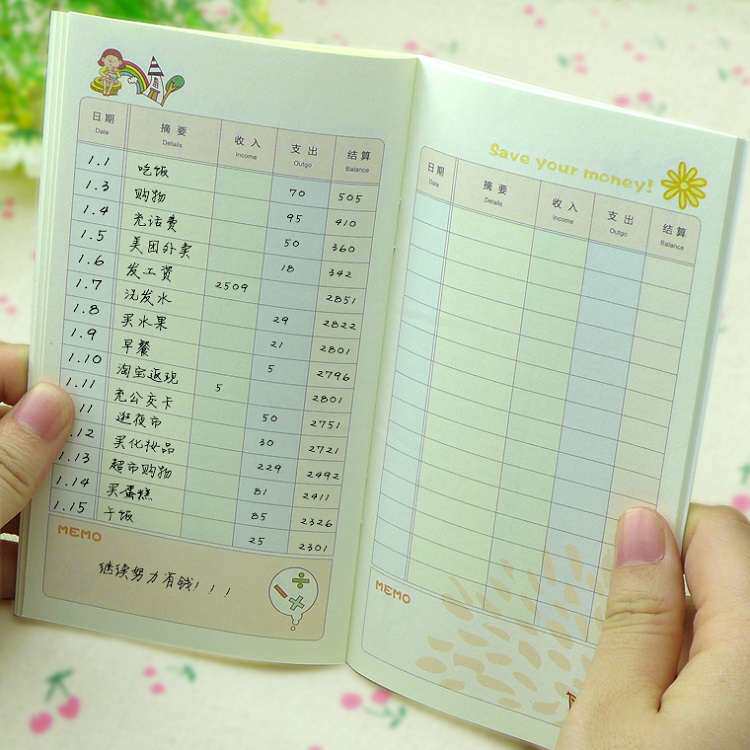 日期 摘要 收入 支出 结算
Date Details Income Outgo Balance
1.1 吃饭 70 505
1.3 购物 95 410
1.4 充话费 50 360
1.5 美团外卖 18 342
1.6 发工资 2509 2851
1.7 洗发水 29 2822
1.8 买水果 21 2801
1.9 早餐 5 2796
1.10 淘宝返现 5 2801
1.11 充公交卡 50 2751
11 逛夜市 30 2721
.12 买化妆品 229 2492
1.13 超市购物 81 2411
1.14 买蛋糕 85 2326
1.15 午饭 25 2301
MEMO
继续努力存钱!!!
Save your money!
日期 摘要 收入 支出 结算
Date Details Income Outgo Balance
MEMO